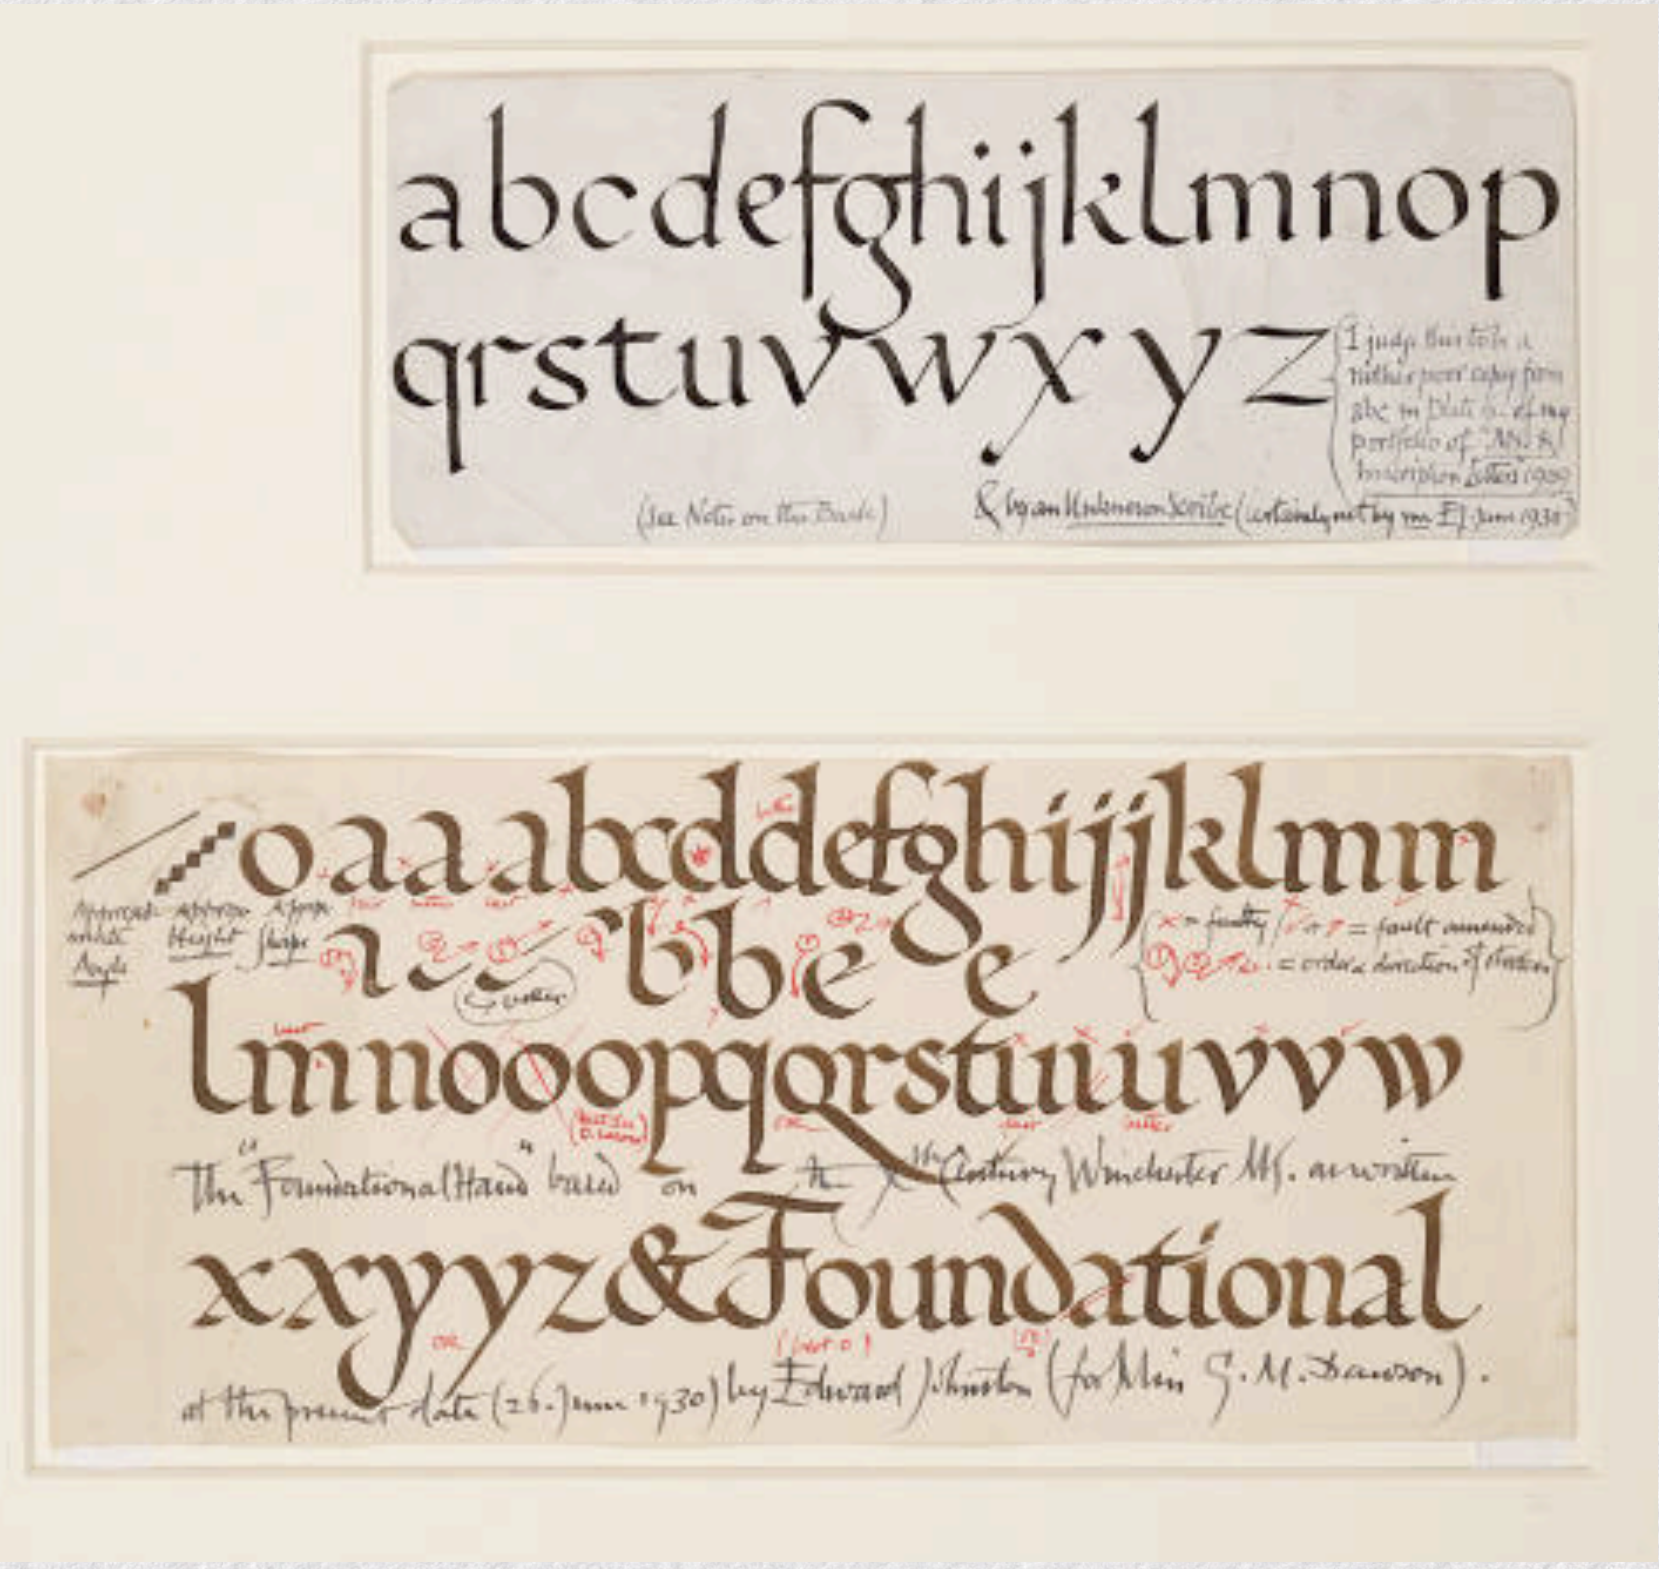 abcdefghijklmnop
qrstuvwxyz
I judge this to be a
rather poor copy from
abc in Plate of my
portfolio of "MS. &
Inscription Letters" 1909
(See Notes on the Back)
& by an Unknown Scribe (certainly not by me EJ. June 1930)
oaaabcddefghijjklmm
better
Approxi- approx. Approx.
mate Height Shape
Angle
ıbbe e
x = faulty = fault amended
= order & direction of strokes
lmnooopqqrstuuuvvw
The "Foundational Hand" based on the Xth Century Winchester MS. as written
OR
xxyyz&Foundational
OR
at the present date (26. June 1930) by Edward Johnston (for Miss G. M. Dawson).